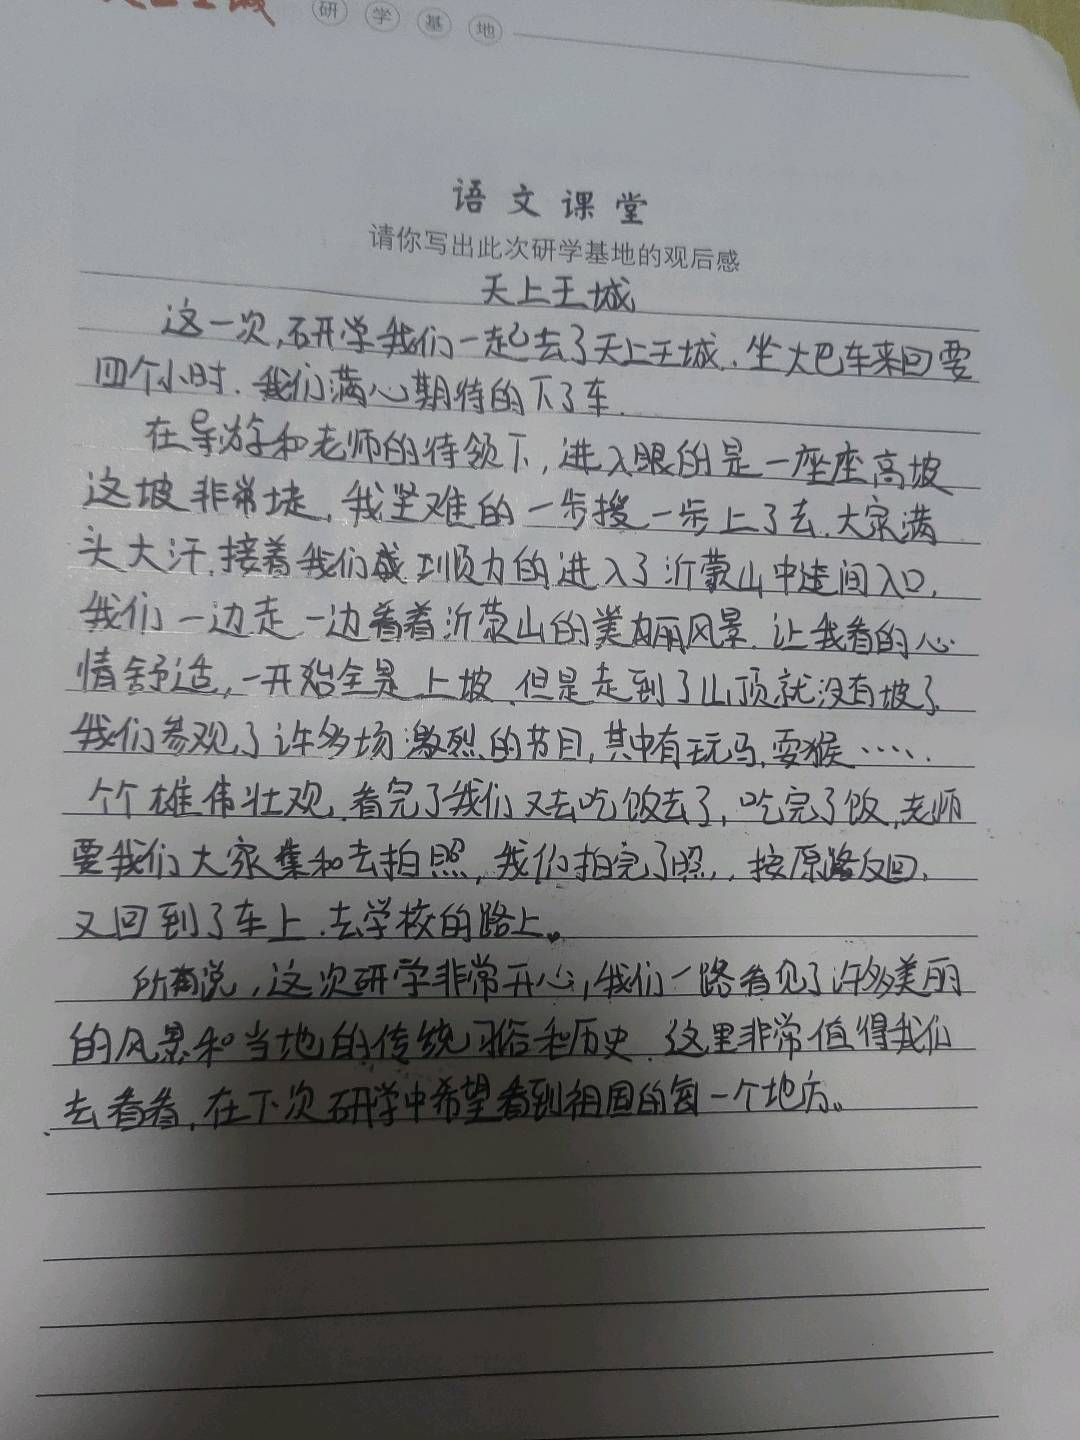 研学基地
语文课堂
请你写出此次研学基地的观后感
天上王城
这一次,研学我们一起去了天上王城.坐大巴车来回要
四个小时.我们满心期待的下了车.
在导游和老师的待领下,进入眼的是一座座高坡
这坡非常堤,我坚难的一步搜一步上了去.大家满
头大汗.接着我们成功顺力的进入了沂蒙山中建间入口.
我们一边走一边看着沂蒙山的美丽风景.让我看的心
情舒适,一开始全是上坡.但是走到了山顶就没有坡了.
我们参观了许多场激烈的节目,其中有玩马,耍猴……
个个雄伟壮观.看完了我们又去吃饭去了,吃完了饭,老师
要我们大家集和去拍照,我们拍完了照,按原路反回,
又回到了车上.去学校的路上。
所有说,这次研学非常开心,我们一路看见了许多美丽
的风景和当地的传统习俗和历史.这里非常值得我们
去看看,在下次研学中希望看到祖国的每一个地方。